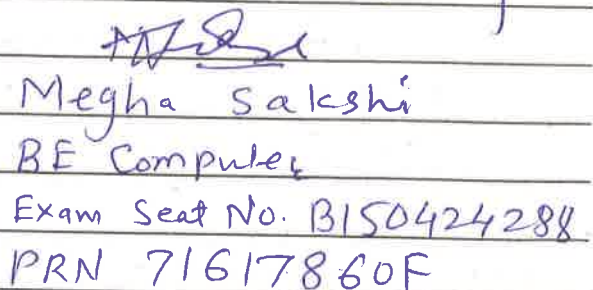 Megha Sakshi
BE Computer
Exam Seat No. B150424288
PRN 71617860F